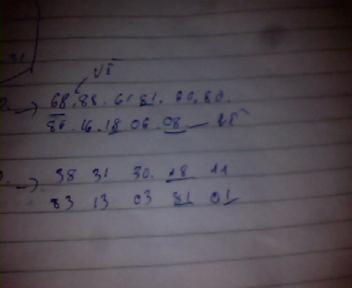 VĨ
2. → 68. 88. 61 81. 60. 80.
86 16. 18 06. 08 —
→ 38 31 30. 18 11
83 13 03 81 01